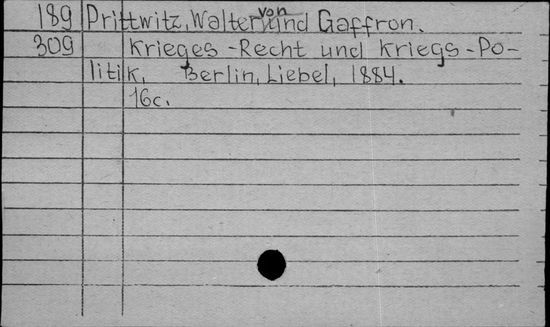 189 Prittwitz, Walter von und Gaffron.
309 Krieges-Recht und Kriegs-Po-
litik, Berlin, Liebel, 1884.
16c.